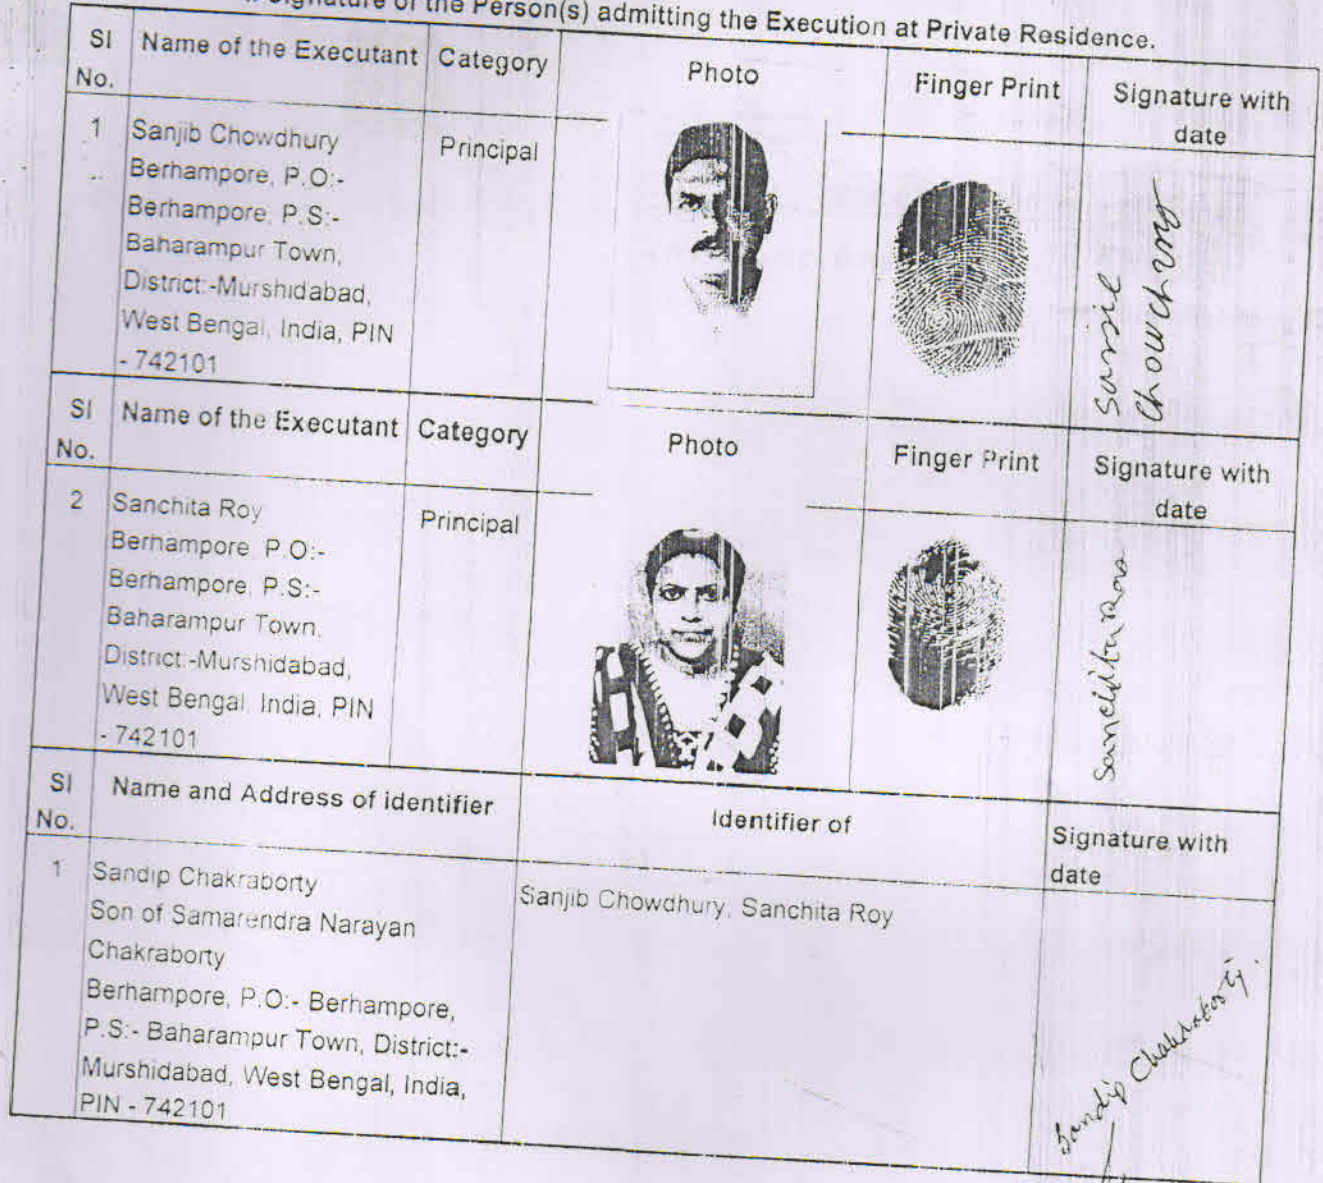 Signature of the Person(s) admitting the Execution at Private Residence.
Sl No. Name of the Executant Category Photo Finger Print Signature with date
1 Sanjib Chowdhury
Berhampore, P.O:-
Berhampore, P.S:-
Baharampur Town,
District:-Murshidabad,
West Bengal, India, PIN
- 742101
Principal
Chowdhury
Sl No. Name of the Executant Category Photo Finger Print Signature with date
2 Sanchita Roy
Berhampore, P.O:-
Berhampore, P.S:-
Baharampur Town,
District:-Murshidabad,
West Bengal, India, PIN
- 742101
Principal
Sanchita Roy
Sl No. Name and Address of identifier Identifier of Signature with date
1 Sandip Chakraborty
Son of Samarendra Narayan
Chakraborty
Berhampore, P.O:- Berhampore,
P.S:- Baharampur Town, District:-
Murshidabad, West Bengal, India,
PIN - 742101
Sanjib Chowdhury, Sanchita Roy
Sandip Chakraborty.